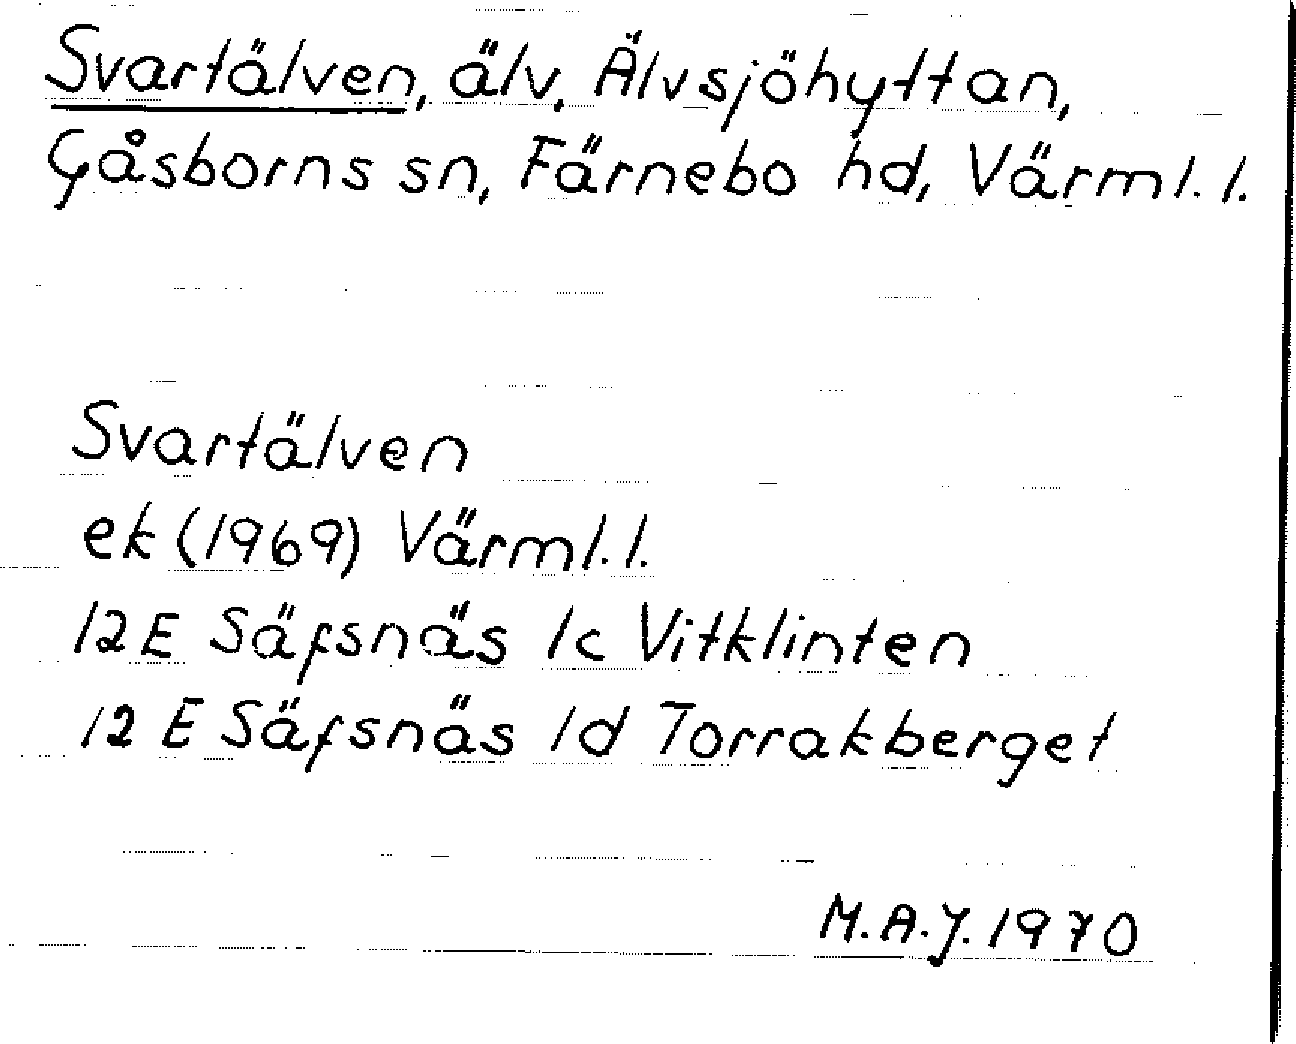 Svartälven, älv, Älvsjöhyttan,
Gåsborns sn, Färnebo hd, Värml. l.
Svartälven
ek (1969) Värml. l.
12 E Säfsnäs 1c Vitklinten
12 E Säfsnäs 1d Torrakberget
M.A.J. 1970